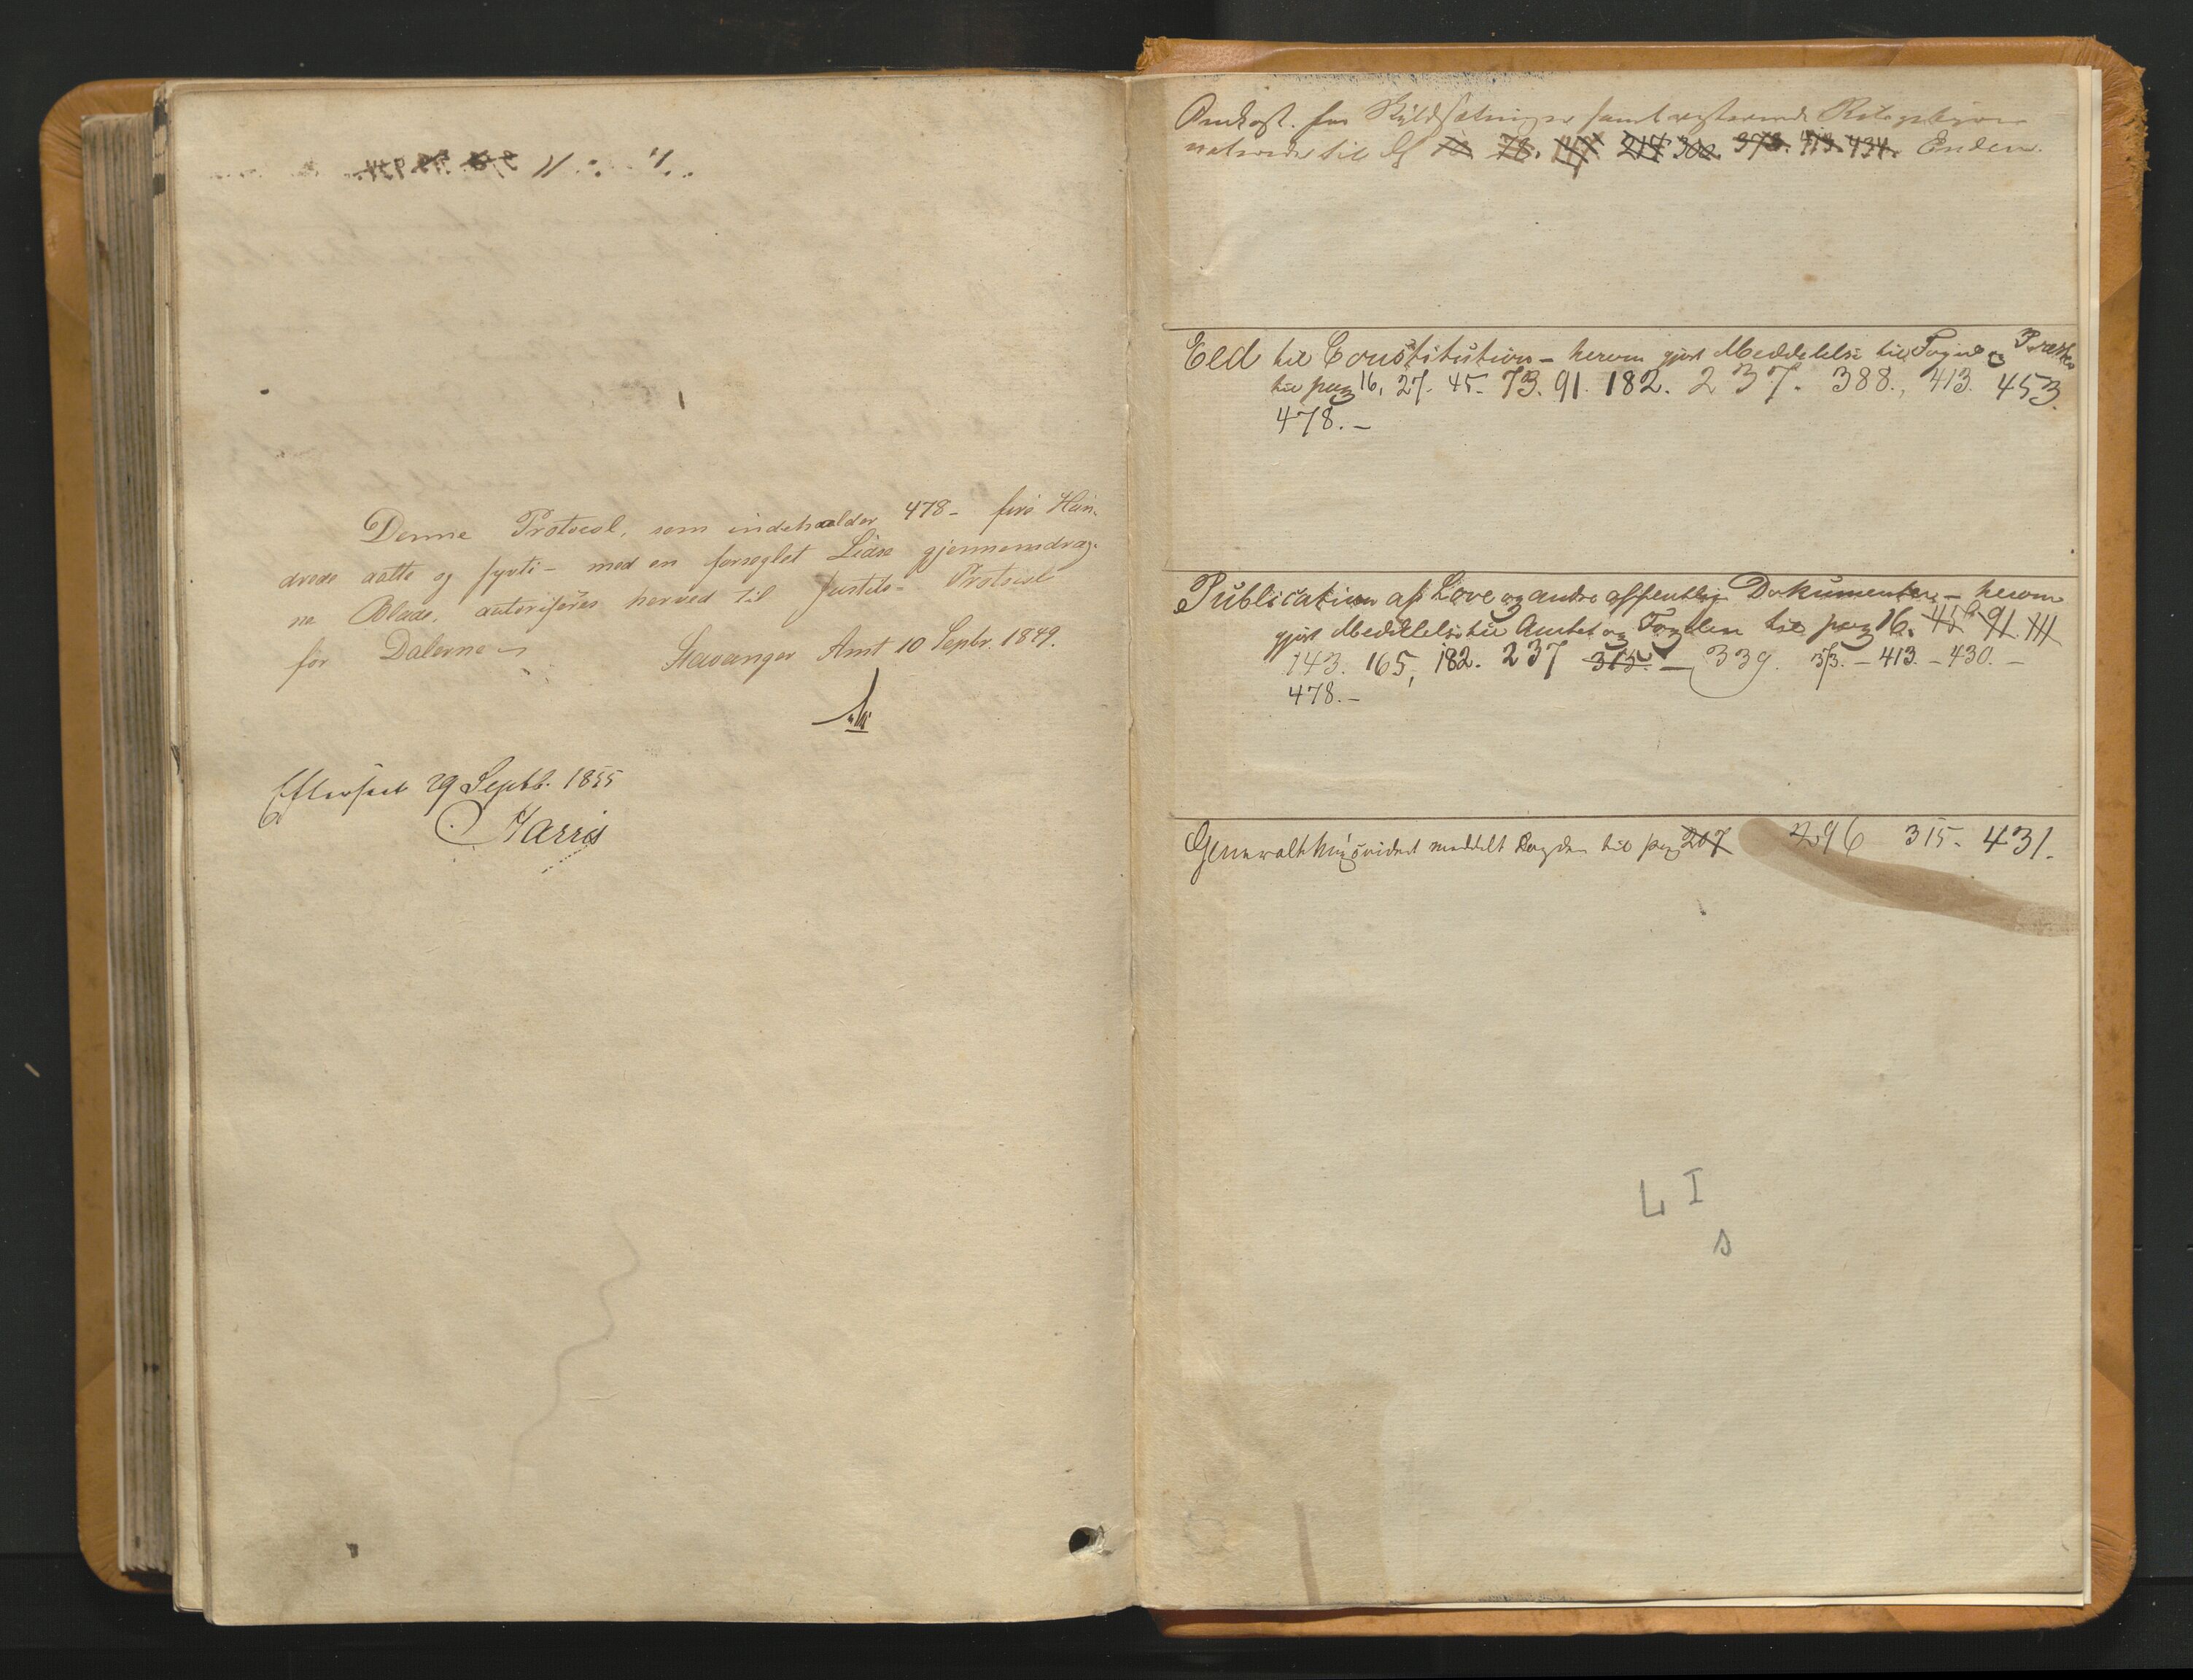 Denne Protocol, som indeholder 478 - fire Hun-
drede aatte og syvti - med en forseglet Lidse gjennemdrag-
ne Blade, autoriseres herved til Justits- Protocol
for Dalerne
Stavanger Amt 10 Septbr. 1849.
Efterseet 29 Septb. 1855
Harris
Omkost. for Skyldsætninger samt resterende
til 78. 214 300. 373. 413. 434. Enden.
Eed til Constitution - herom gjort Meddelelse til Fogd og
til pag 16, 27. 45. 73. 91. 182. 237. 388., 413. 453.
478. -
Publication af Love og andre offentlige Dokumenter - herom
gjort Meddelelse til Amtet og Fogden til pag 16. 45 91 111
143. 165, 182. 237 315. - 339. 373. - 413. - 430. -
478. -
Generalthingsvidnet meddelt Fogden til pag 207 296 315. 431.
L I
s